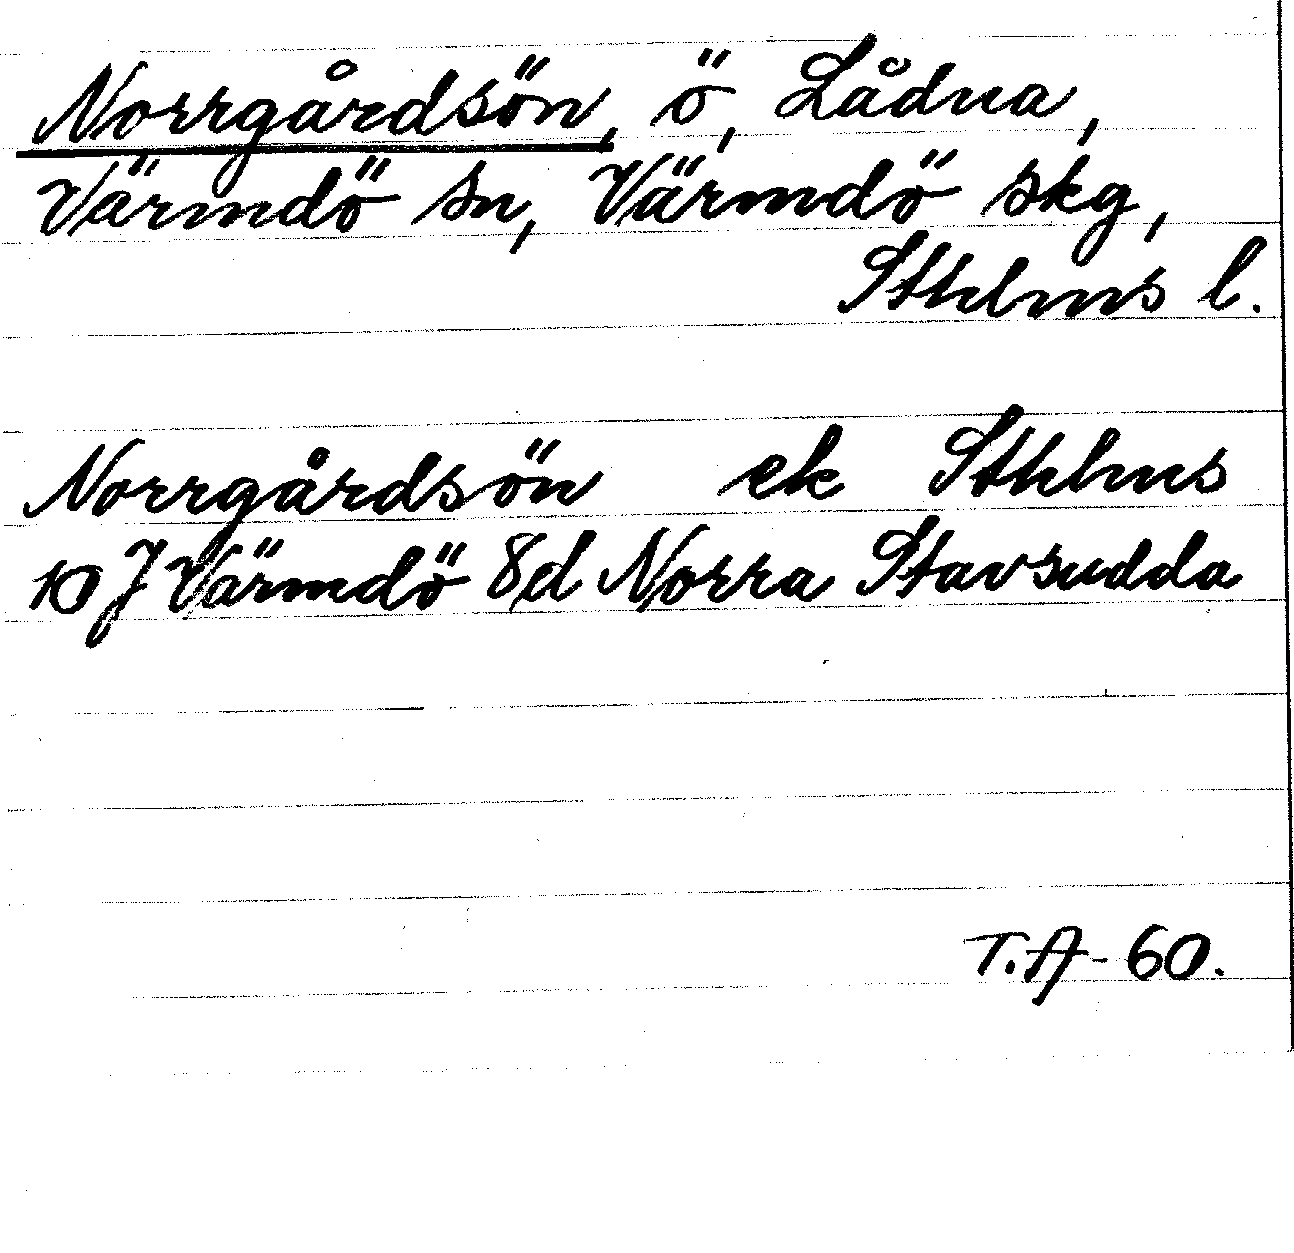 Norrgårdsön, ö, Lådna,
Värmdö sn, Värmdö skg,
Sthlms l.
Norrgårdsön ek Sthlms
10 J Värmdö 8d Norra Stavsudda
T.A-60.